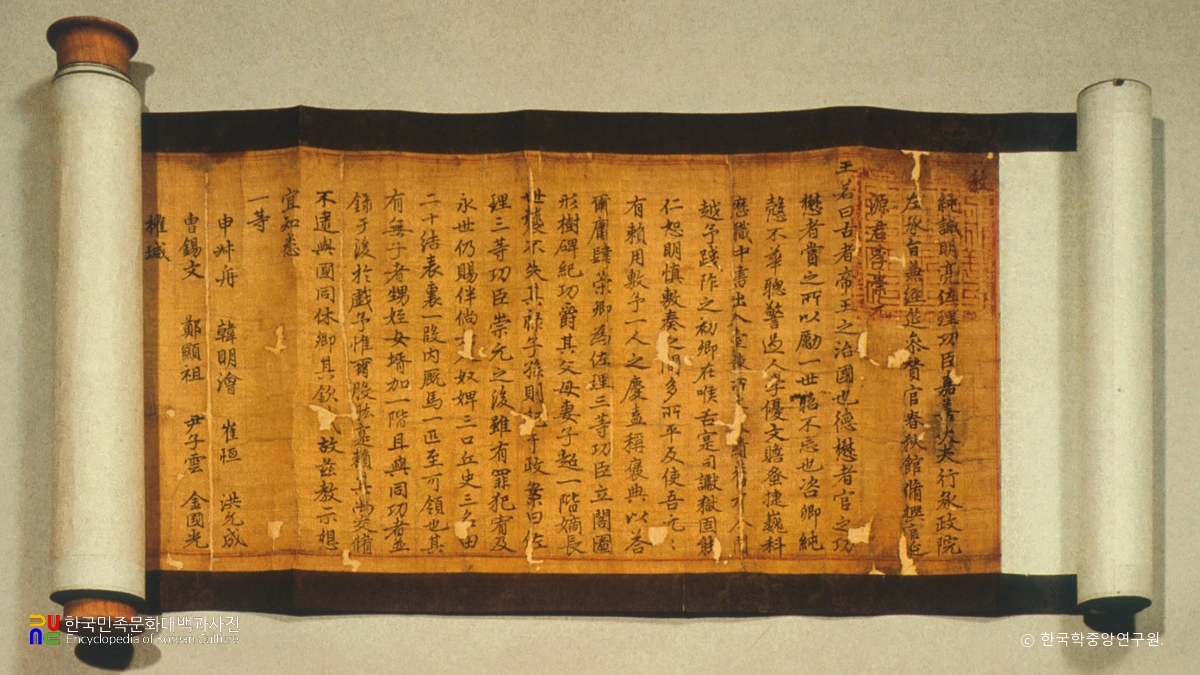 教
純誠明亮佐理功臣嘉善大夫行承政院
左承旨兼經筵參贊官春秋館脩撰官
源君李崇元
王若曰古者帝王之治國也德懋者官之功
懋者賞之所以勵一世昭不忘也咨卿純
慤不華聰警過人學優文贍蚤捷巍科
歷職中書出入臺
越予踐阼之初卿在喉舌寔司讞獄固能
仁恕明慎敷奏之間多所平反使吾元
有賴用敷予一人之慶盍稱褒典以答
爾庸肆策卿為佐理三等功臣立閣圖
形樹碑紀功爵其父母妻子超一階嫡長
世襲不失其祿子孫則記于政案曰佐
理三等功臣崇元之後雖有罪犯宥及
永世仍賜伴倘 人奴婢三口丘史三名田
二十結表裏一段內廐馬一匹至可領也其
有無子者甥姪女壻加一階且與同功者並
錄于後於戲予惟爾股肱寔賴
不遺與國同休卿其欽 故茲教示想
宜知悉
一等
申叔舟 韓明澮 崔恒 洪允成
曺錫文 鄭顯祖 尹子雲 金國光
權瑊
한국민족문화대백과사전
Encyclopedia of Korean Culture
© 한국학중앙연구원.